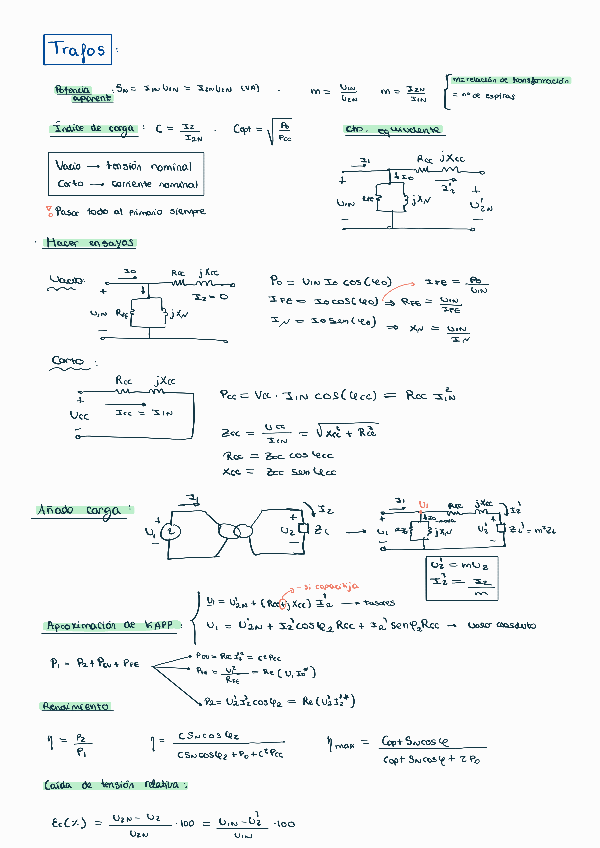 Trafos:
Potencia aparent SN = I1N U1N = I2N U2N (VA) . m = U1N/U2N m = I2N/I1N m≡relación de transformación = nº de espiras
Índice de carga: C = I2/I2N . Copt = √(P0/Pcc)
Cto. equivalente
Vacío → tensión nominal
Corto → corriente nominal
I1 Rcc jXcc
+ I0 I2' +
U1N RFE jXN U2N'
- -
Pasar todo al primario siempre
· Hacer ensayos
Vacío: I0 Rcc jXcc
+ I2 = 0
U1N RFE jXN
-
P0 = U1N I0 cos(φ0) IFE = P0/U1N
IFE = I0 cos(φ0) ⇒ RFE = U1N/IFE
IN = I0 sen(φ0) ⇒ XN = U1N/IN
Corto:
Rcc jXcc
+
Ucc Icc = I1N
-
Pcc = Vcc · I1N cos(φcc) = Rcc I1N²
Zcc = Ucc/I1N = √(Xcc² + Rcc²)
Rcc = Zcc cos φcc
Xcc = Zcc sen φcc
Añado carga: I1 I2
U1 + - + U2 - ZL →
I1 U1 Rcc jXcc I2'
+ I0 +
U1 RFE jXN U2' ZL' = m²ZL
- -
U2' = mU2
I2' = I2/m
- si capacitiva
Aproximación de KAPP:
U1 = U2N' + (Rcc+jXcc) I2' → fasores
U1 = U2N' + I2' cosφ2 Rcc + I2' senφ2 Rcc →
P1 = P2 + PCU + PFE
PCU = Rcc I2'² = C²Pcc
PFE = U1²/RFE = Re(U1 I0*)
P2 = U2' I2' cosφ2 = Re(U2' I2'*)
Rendimiento
η = P2/P1 η = C SN cos φ2/(C SN cosφ2 + P0 + C²Pcc) ηmax = Copt SN cosφ/(Copt SN cosφ + 2P0)
Caída de tensión relativa:
Ec(%) = (U2N - U2)/U2N · 100 = (U1N - U2')/U1N · 100